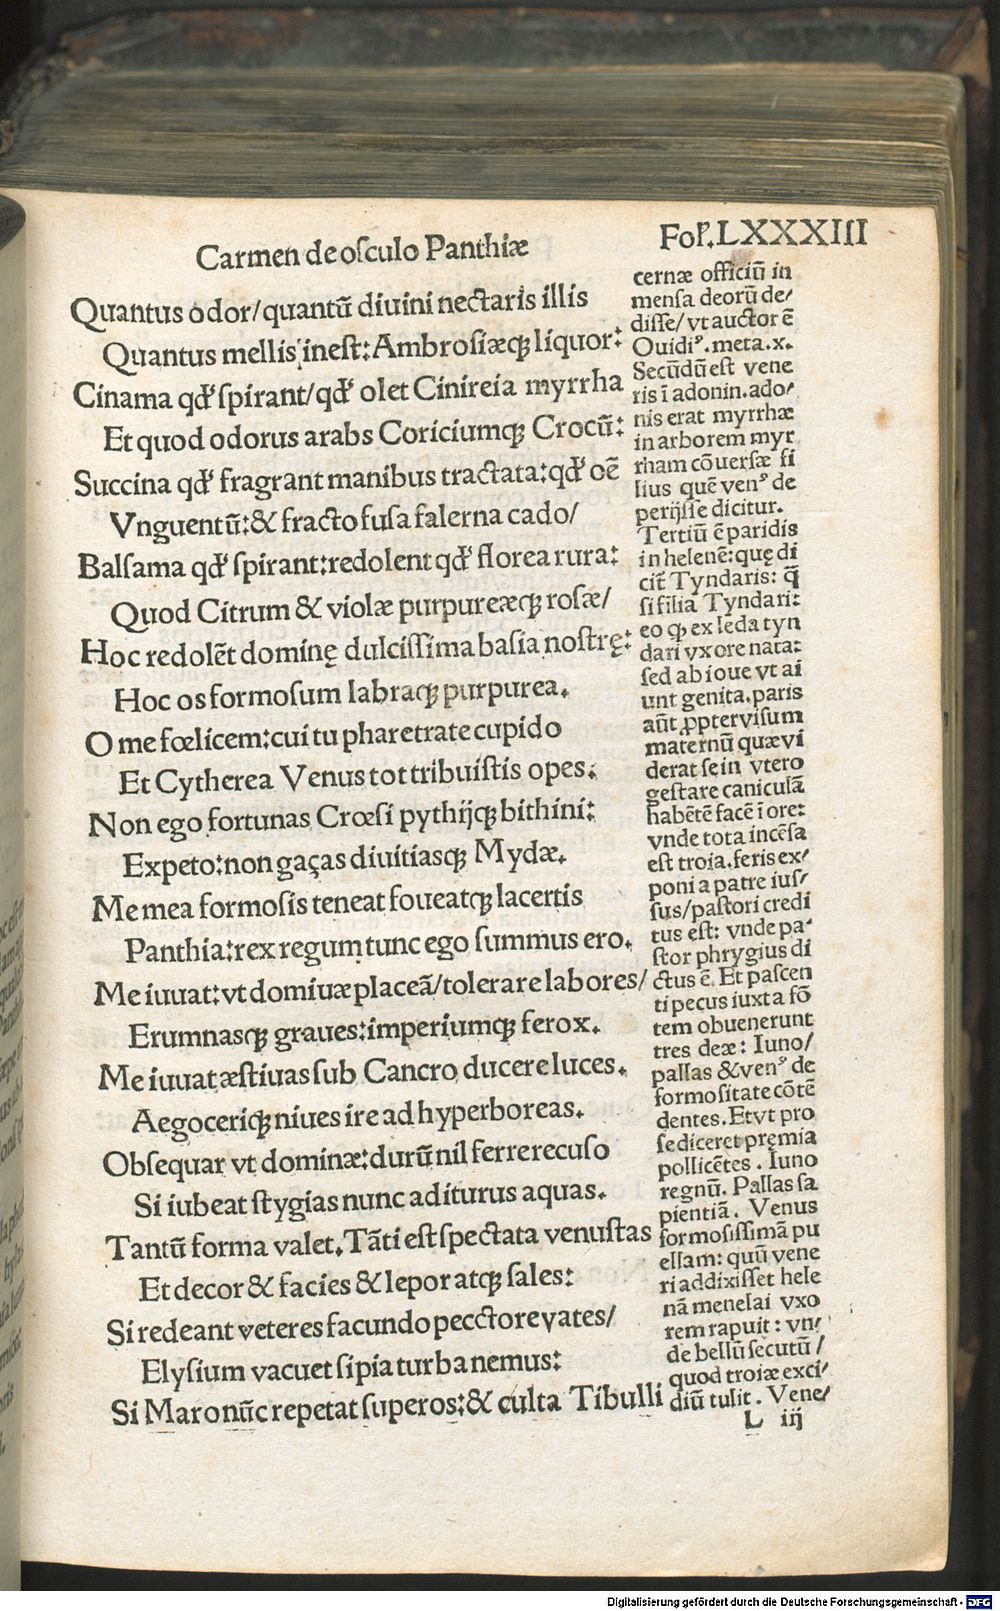 Carmen de osculo Panthiæ
Foꝉ. LXXXIII
Quantus odor/quantũ diuini nectaris illis
Quantus mellis inest: Ambrosiæqꝫ liquor:
Cinama qđ spirant/qđ olet Cinireia myrrha
Et quod odorus arabs Coriciumqꝫ Crocũ:
Succina qđ fragrant manibus tractata: qđ oẽ
Vnguentũ: & fracto fusa falerna cado/
Balsama qđ spirant: redolent qđ florea rura:
Quod Citrum & violæ purpureæqꝫ rosæ/
Hoc redolẽt dominę dulcissima basia nostrę:
Hoc os formosum labraqꝫ purpurea.
O me fœlicem: cui tu pharetrate cupido
Et Cytherea Venus tot tribuistis opes.
Non ego fortunas Crœsi pythijqꝫ bithini:
Expeto: non gaças diuitiasqꝫ Mydæ.
Me mea formosis teneat foueatqꝫ lacertis
Panthia: rex regum tunc ego summus ero.
Me iuuat: vt domiuæ placeã/tolerare labores/
Erumnasqꝫ graues: imperiumqꝫ ferox.
Me iuuat æstiuas sub Cancro ducere luces.
Aegoceriqꝫ niues ire ad hyperboreas.
Obsequar vt dominæ: durũ nil ferre recuso
Si iubeat stygias nunc aditurus aquas.
Tantũ forma valet. Tãti est spectata venustas
Et decor & facies & lepor atqꝫ sales:
Si redeant veteres facundo pecctore vates/
Elysium vacuet si pia turba nemus:
Si Maro nũc repetat superos: & culta Tibulli
cernæ officiũ in
mensa deorũ de/
disse/ vt auctor ẽ
Ouidiꝰ. meta. x.
Secũdũ est vene
ris ĩ adonin. ado/
nis erat myrrhæ
in arborem myr
rham cõuersæ fi
lius quẽ venꝰ de
perijsse dicitur.
Tertiũ ẽ paridis
in helenẽ: quę di
cit̃ Tyndaris: q̃
si filia Tyndari:
eo qꝫ ex leda tyn
dari vxore nata:
sed ab ioue vt ai
unt genita. paris
aũt ꝓpter visum
maternũ quæ vi
derat se in vtero
gestare caniculã
habẽtẽ facẽ ĩ ore:
vnde tota incẽsa
est troia. feris ex/
poni a patre ius/
sus/ pastori credi
tus est: vnde pa/
stor phrygius di
ctus ẽ. Et pascen
ti pecus iuxta fõ
tem obuenerunt
tres deæ: Iuno/
pallas & venꝰ de
formositate cõtẽ
dentes. Et vt pro
se diceret pręmia
pollicẽtes. Iuno
regnũ. Pallas sa
pientiã. Venus
formosissimã pu
ellam: quũ vene
ri addixisset hele
nã menelai vxo
rem rapuit: vn/
de bellũ secutũ/
quod troiæ exci/
diũ tulit. Vene/
L iij
Digitalisierung gefördert durch die Deutsche Forschungsgemeinschaft - DFG